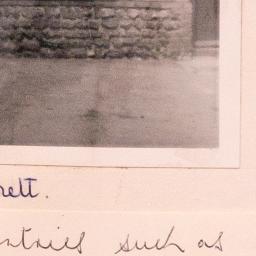 rett.
ntries such as